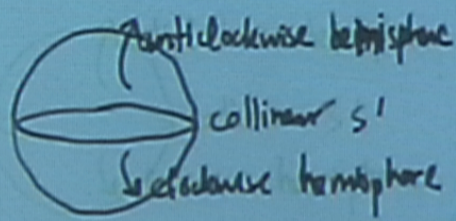 anticlockwise hemisphere
collinear S¹
clockwise hemisphere